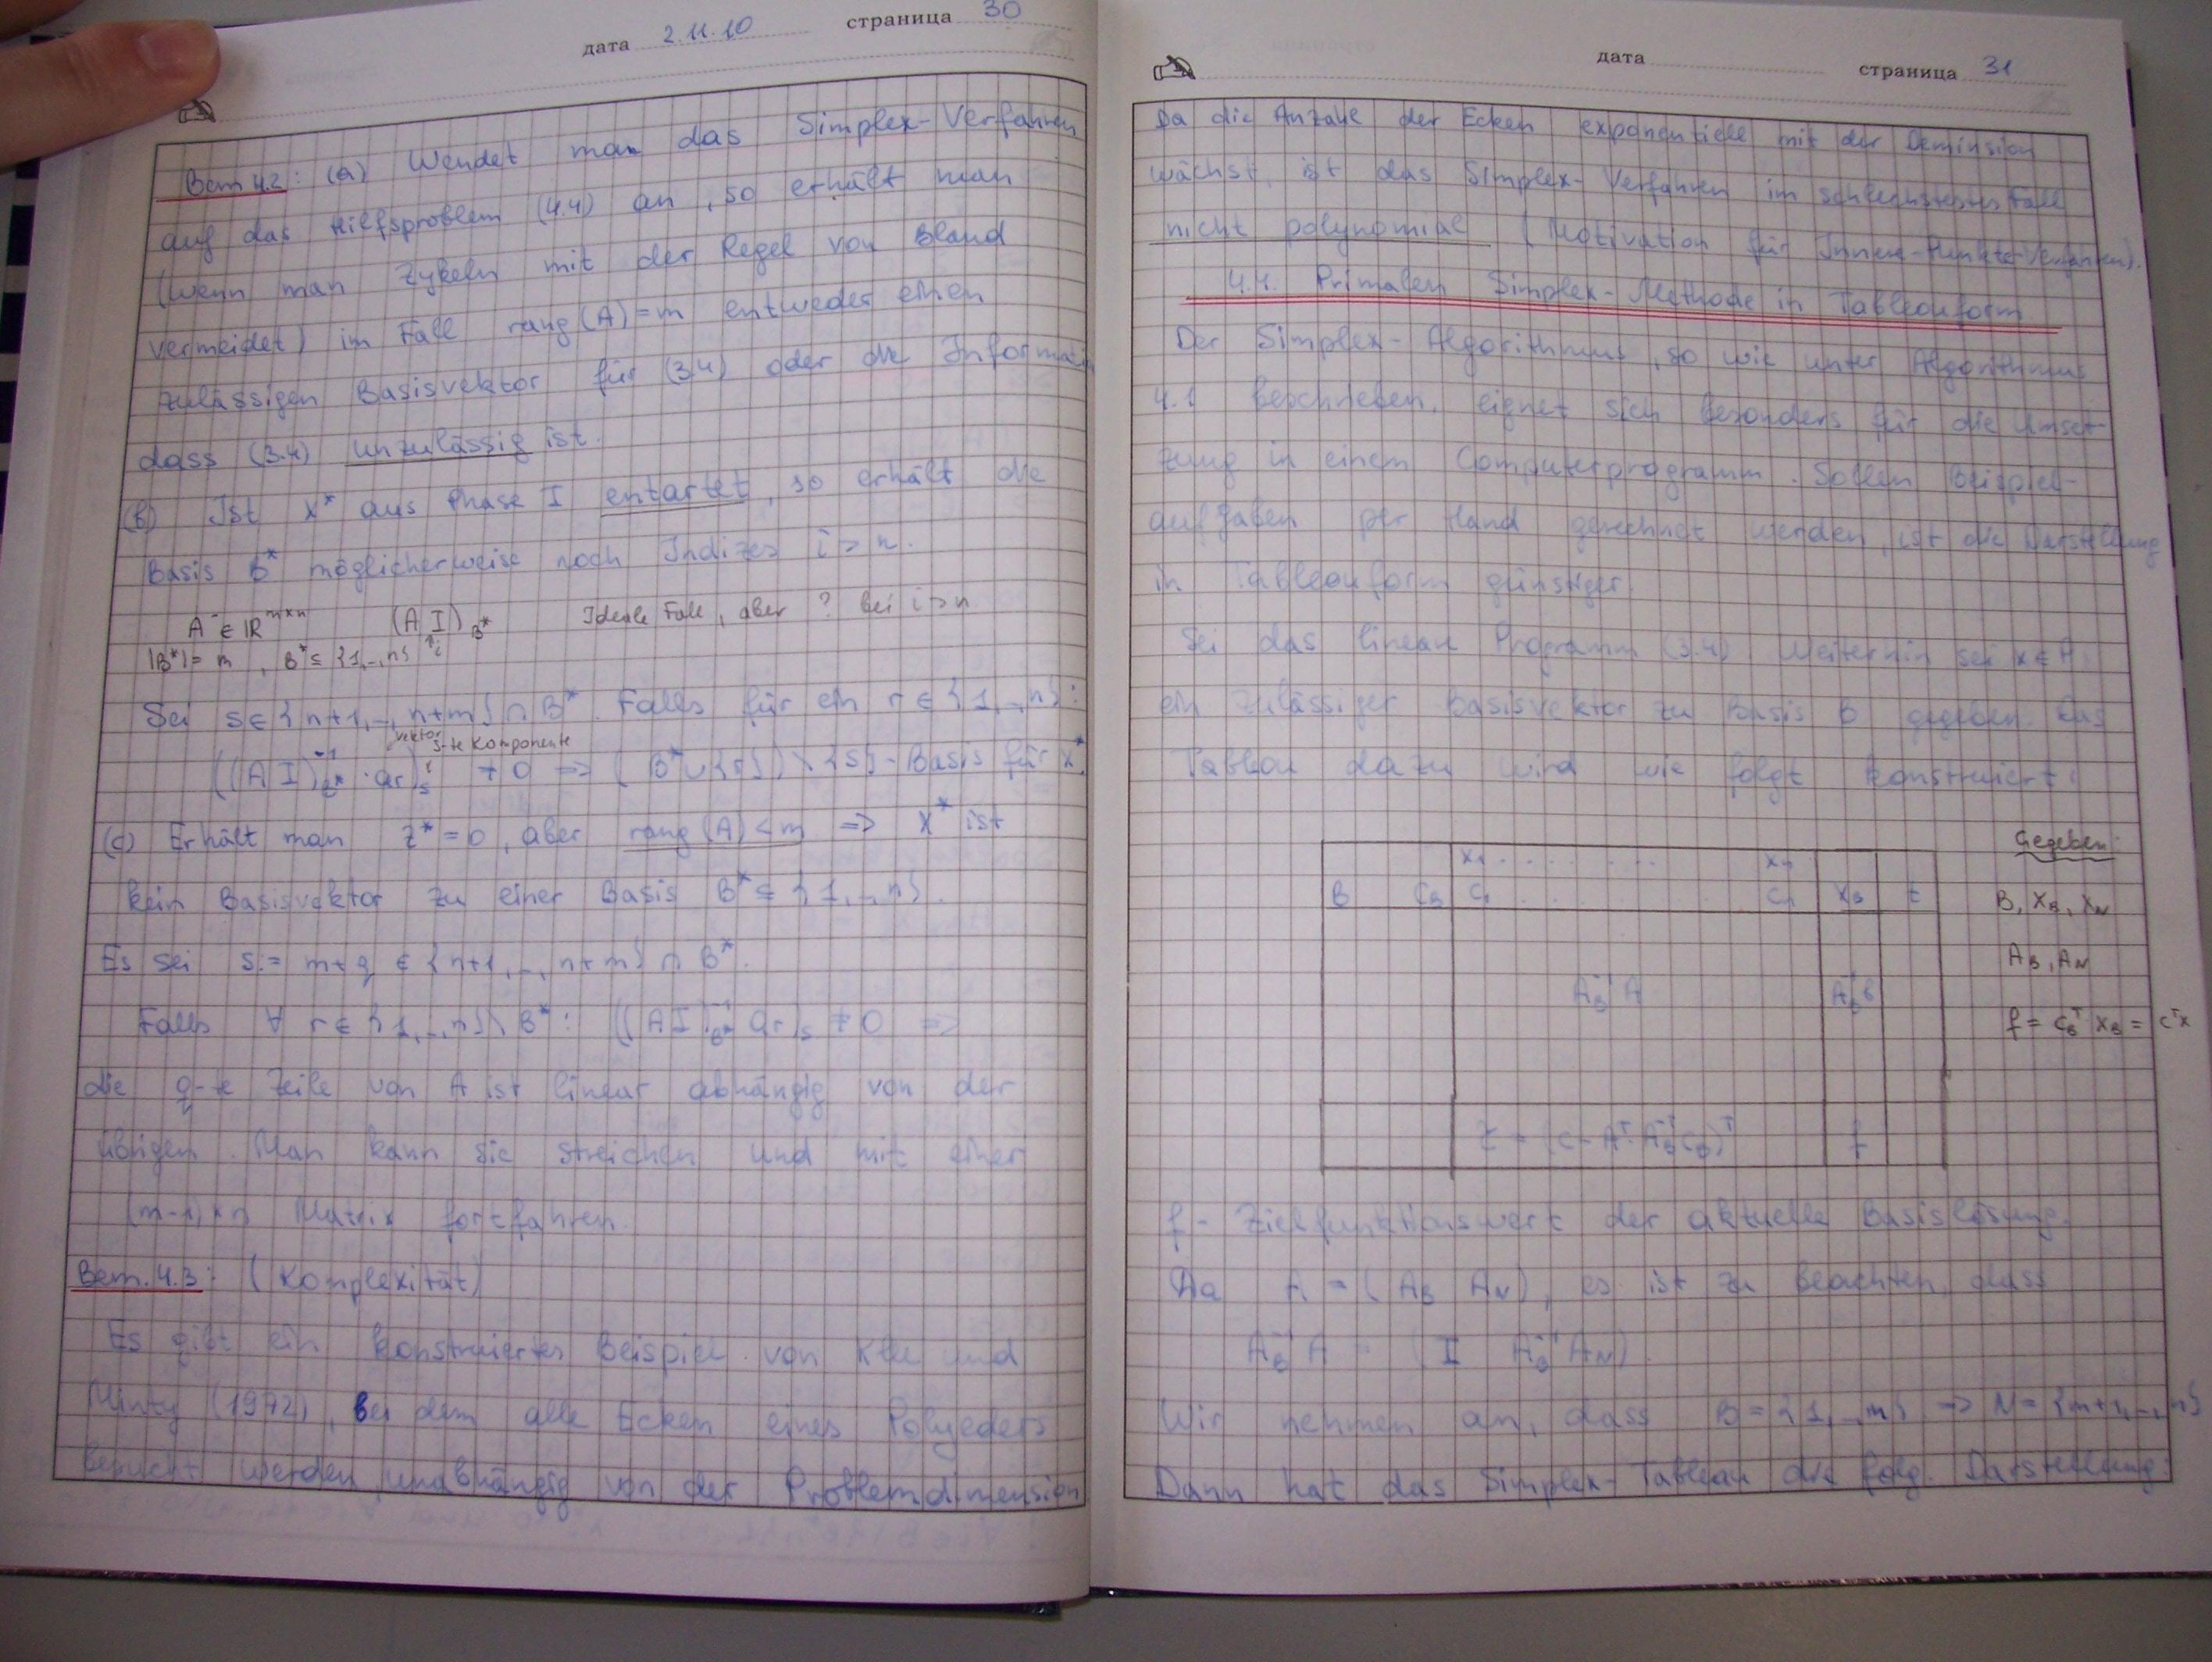 дата 2.11.10 страница 30
Bem 4.2: (a) Wendet man das Simplex-Verfahren
auf das Hilfsproblem (4.4) an, so erhält man
(wenn man Zykeln mit der Regel von Bland
vermeidet) im Fall rang(A)=m entweder einen
zulässigen Basisvektor für (3.4) oder die Informati
dass (3.4) unzulässig ist.
(b) Ist x* aus Phase I entartet, so erhält die
Basis B* möglicherweise noch Indizes i > n.
A ∈ ℝ^{m×n} (A I)_{B*} Ideale Fall, aber ? bei i > n
|B*| = m, B* ⊆ {1,..,n} i
Sei s ∈ {n+1,..,n+m} ∩ B*. Falls für ein r ∈ {1,..,n}:
vektor s-te Komponente
((A I)^{-1}_{B*} · ar)_s ≠ 0 => (B* ∪ {r}) \ {s} - Basis für x*
(c) Erhält man z* = 0, aber rang(A) < m => x* ist
kein Basisvektor zu einer Basis B* ⊆ {1,..,n}.
Es sei s := m+q ∈ {n+1,..,n+m} ∩ B*.
Falls ∀ r ∈ {1,..,n} \ B*: ((A I)^{-1}_{B*} ar)_s ≠ 0 =>
die q-te Zeile von A ist linear abhängig von der
übrigen. Man kann sie streichen und mit einer
(m-1)×n Matrix fortfahren.
Bem. 4.3: (Komplexität)
Es gibt ein konstruiertes Beispiel von Klee und
Minty (1972), bei dem alle Ecken eines Polyeders
besucht werden, unabhängig von der Problemdimension
дата страница 31
Da die Anzahl der Ecken exponentiell mit der Deminsion
wächst, ist das Simplex-Verfahren im schlechtestes Fall
nicht polynomial (Motivation für Innere-Punkte-Verfahren).
4.4. Primalen Simplex-Methode in Tableauform
Der Simplex-Algorithmus, so wie unter Algorithmus
4.1 beschrieben, eignet sich besonders für die Umset-
zung in einem Computerprogramm. Sollen Beispiel-
aufgaben per Hand gerechnet werden, ist die Darstellung
in Tableauform günstiger.
Sei das lineare Programm (3.4) Weiterhin sei x ∈
ein zulässiger Basisvektor zu Basis B gegeben. Das
Tableau dazu wird wie folgt konstruiert:
Gegeben:
x1 . . . . . . . xn
B C_B C1 . . . . . Cn X_B t
B, X_B, X_N
A_B, A_N
A_B^{-1} A A_B^{-1} b
f = c_B^T x_B = c^T x
z = (c - A^T · A_B^{-T} c_B)^T f
f - Zielfunktionswert der aktuelle Basislösung.
Da A = (A_B A_N), es ist zu beachten, dass
A_B^{-1} A = (I A_B^{-1} A_N).
Wir nehmen an, dass B = {1,..,m} => N = {m+1,..,n}
Dann hat das Simplex-Tableau die folg. Darstellung: